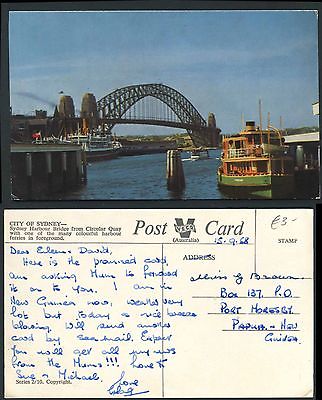 CITY OF SYDNEY—
Sydney Harbour Bridge from Circular Quay
with one of the many colourful harbour
ferries in foreground.
Post Card
(Australia)
15.9.68
£3-
STAMP
ADDRESS
Dear Eileen David,
Here is the promised card,
am asking Mum to forward
it on to you. I am in
New Guinea now, weather very
hot but today a nice breeze
blowing. Will send another
card by seamail. Expect
you will get all my news
from the Mums!!! Love to
Sue & Michael.
love
Miss G
BOX 137. P.O.
PORT MORESBY
PAPUA - NEW
GUINEA
Series 2/10. Copyright.